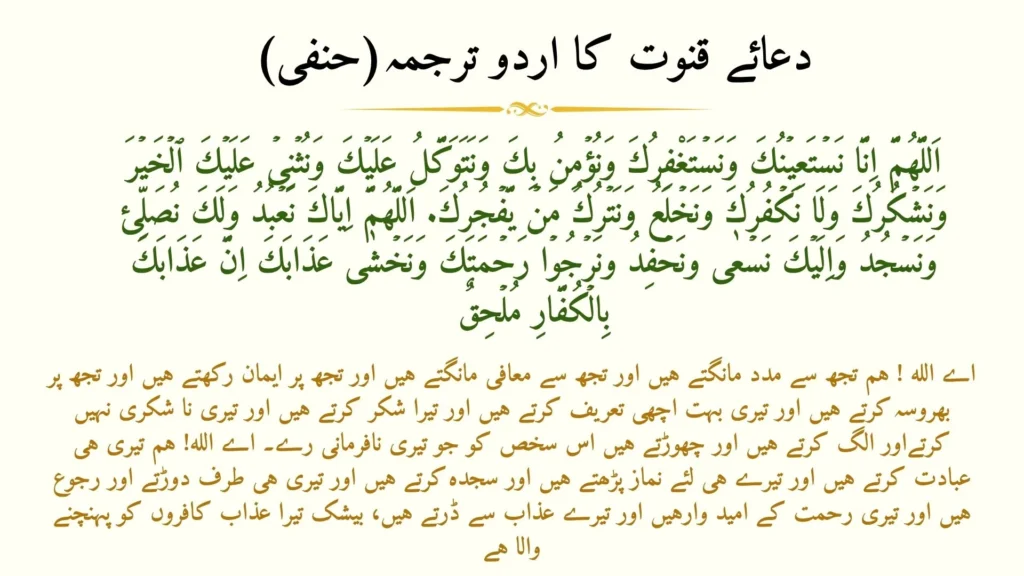 دعائے قنوت کا اردو ترجمہ (حنفی)
اَللّٰهُمَّ اِنَّا نَسْتَعِيْنُكَ وَنَسْتَغْفِرُكَ وَنُؤْمِنُ بِكَ وَنَتَوَكَّلُ عَلَيْكَ وَنُثْنِيْ عَلَيْكَ الْخَيْرَ
وَنَشْكُرُكَ وَلَا نَكْفُرُكَ وَنَخْلَعُ وَنَتْرُكُ مَنْ يَّفْجُرُكَ. اَللّٰهُمَّ اِيَّاكَ نَعْبُدُ وَلَكَ نُصَلِّيْ
وَنَسْجُدُ وَاِلَيْكَ نَسْعٰى وَنَحْفِدُ وَنَرْجُوْا رَحْمَتَكَ وَنَخْشٰى عَذَابَكَ اِنَّ عَذَابَكَ
بِالْكُفَّارِ مُلْحِقٌ
اے اللہ ! ہم تجھ سے مدد مانگتے ہیں اور تجھ سے معافی مانگتے ہیں اور تجھ پر ایمان رکھتے ہیں اور تجھ پر
بھروسہ کرتے ہیں اور تیری بہت اچھی تعریف کرتے ہیں اور تیرا شکر کرتے ہیں اور تیری نا شکری نہیں
کرتےاور الگ کرتے ہیں اور چھوڑتے ہیں اس سخص کو جو تیری نافرمانی رے۔ اے اللہ! ہم تیری ہی
عبادت کرتے ہیں اور تیرے ہی لئے نماز پڑھتے ہیں اور سجدہ کرتے ہیں اور تیری ہی طرف دوڑتے اور رجوع
ہیں اور تیری رحمت کے امید وارہیں اور تیرے عذاب سے ڈرتے ہیں، بیشک تیرا عذاب کافروں کو پہنچنے
والا ہے